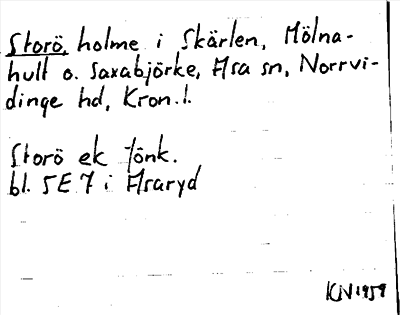 Storö, holme i Skärlen, Mölna-
hult o. Saxabjörke, Asa sn, Norrvi-
dinge hd, Kron.l.
Storö ek Jönk.
bl. 5E7 i Asaryd
KN 1959